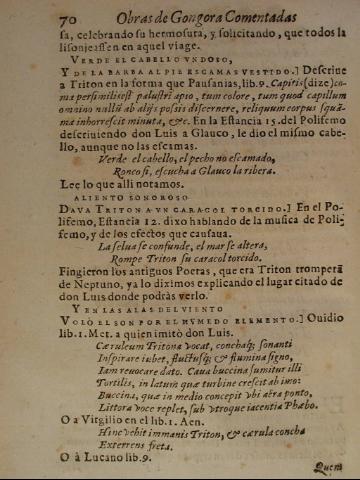 70 Obras de Gongora Comentadas
sa, celebrando su hermosura, y solicitando, que todos la
lisonjeassen en aquel viage.
VERDE EL CABELLO VNDOSO,
Y DE LA BARBA AL PIE ESCAMAS VESTIDO.] Descriue
a Triton en la forma que Pausanias, lib. 9. Capitis (dize) co-
ma persimilis est palustri apio, tum colore, tum quod capillum
omnino nullũ ab alijs possis discernere, reliquum corpus squã-
ma inhorrescit minuta, &c. En la Estancia 15. del Polifemo
descriuiendo don Luis a Glauco, le dio el mismo cabe-
llo, aunque no las escamas.
Verde el cabello, el pecho no escamado,
Ronco si, escucha a Glauco la ribera.
Lee lo que alli notamos.
ALIENTO SONOROSO
DAVA TRITON A VN CARACOL TORCIDO.] En el Po-
lifemo, Estancia 12. dixo hablando de la musica de Poli-
femo, y de los efectos que causaua.
La selua se confunde, el mar se altera,
Rompe Triton su caracol torcido.
Fingieron los antiguos Poetas, que era Triton trompeta
de Neptuno, ya lo diximos explicando el lugar citado de
don Luis donde podràs verlo.
Y EN LAS ALAS DEL VIENTO
VOLÒ EL SON POR EL HVMEDO ELEMENTO.] Ouidio
lib. 1. Met. a quien imitò don Luis.
Cæruleum Tritona vocat, conchaq; sonanti
Inspirare iubet, fluctusq; & flumina signo,
Iam reuocare dato. Caua buccina sumitur illi
Tortilis, in latum quæ turbine crescit ab imo:
Buccina, quæ in medio concepit vbi aëra ponto,
Littora voce replet, sub vtroque iacentia Phæbo.
O a Virgilio en el lib. 1. Aen.
Hinc vehit immanis Triton, & cærula concha
Exterrens freta.
O à Lucano lib. 9.
Quem